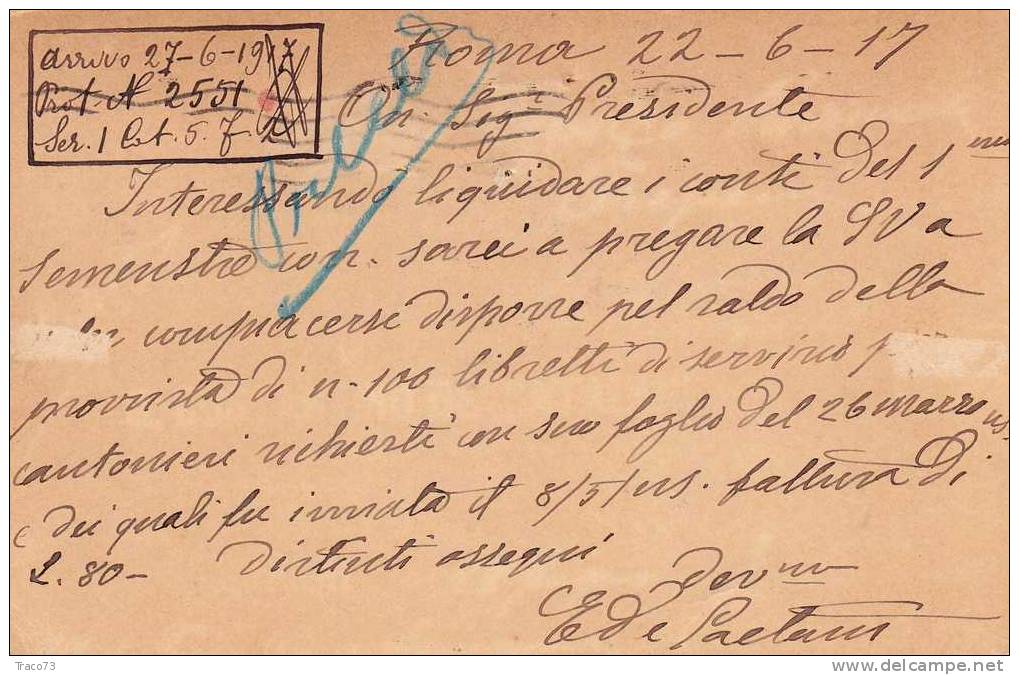 Arrivo 27-6-1917
Prot. N 2551
Ser. 1 Cat. 5. F. 2
Roma 22-6-17
On. Sigr Presidente
Interessando liquidare i conti del 1mo
semestre corr. sarei a pregare la SV a
compiacersi disporre pel saldo della
provvista di n. 100 libretti di servizio
cantonieri richiesti con suo foglio del 26 marzo us.
e dei quali fu inviata il 8/5/us. fattura di
L. 80- Distinti ossequi
Devmo
E de Gaetani
Traco73
www.delcampe.net